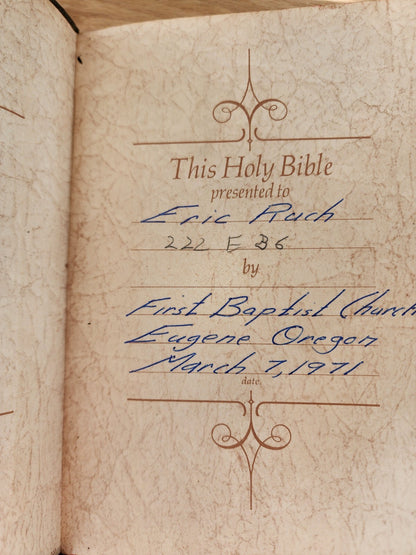 This Holy Bible
presented to
Eric Rach
222 E 36
by
First Baptist Church
Eugene Oregon
March 7, 1971
date